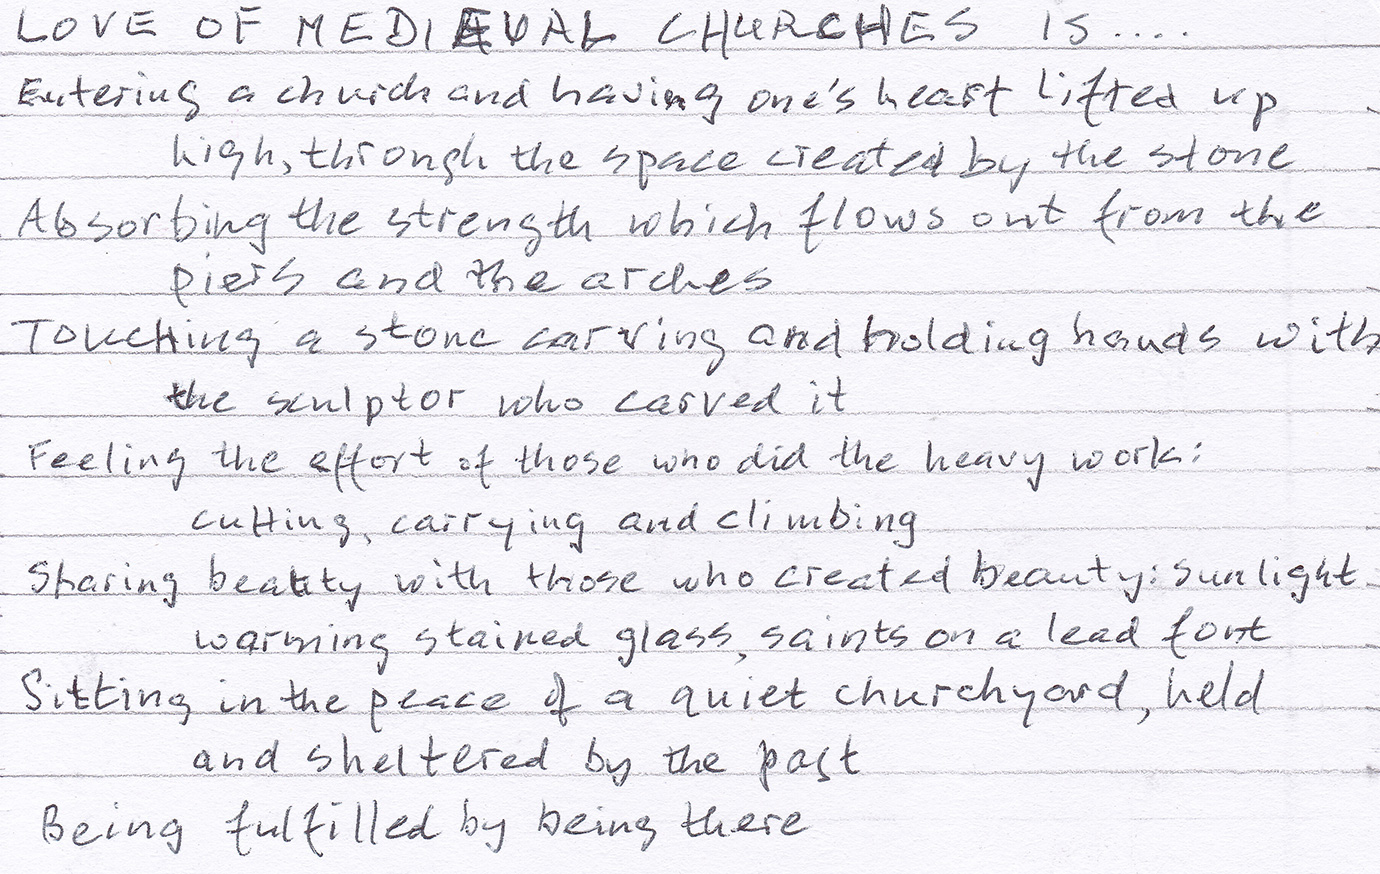 LOVE OF MEDIEVAL CHURCHES IS....
Entering a church and having one's heart lifted up
high, through the space created by the stone
Absorbing the strength which flows out from the
piers and the arches
Touching a stone carving and holding hands with
the sculptor who carved it
Feeling the effort of those who did the heavy work:
cutting, carrying and climbing
Sharing beauty with those who created beauty: sunlight
warming stained glass, saints on a lead font
Sitting in the peace of a quiet churchyard, held
and sheltered by the past
Being fulfilled by being there